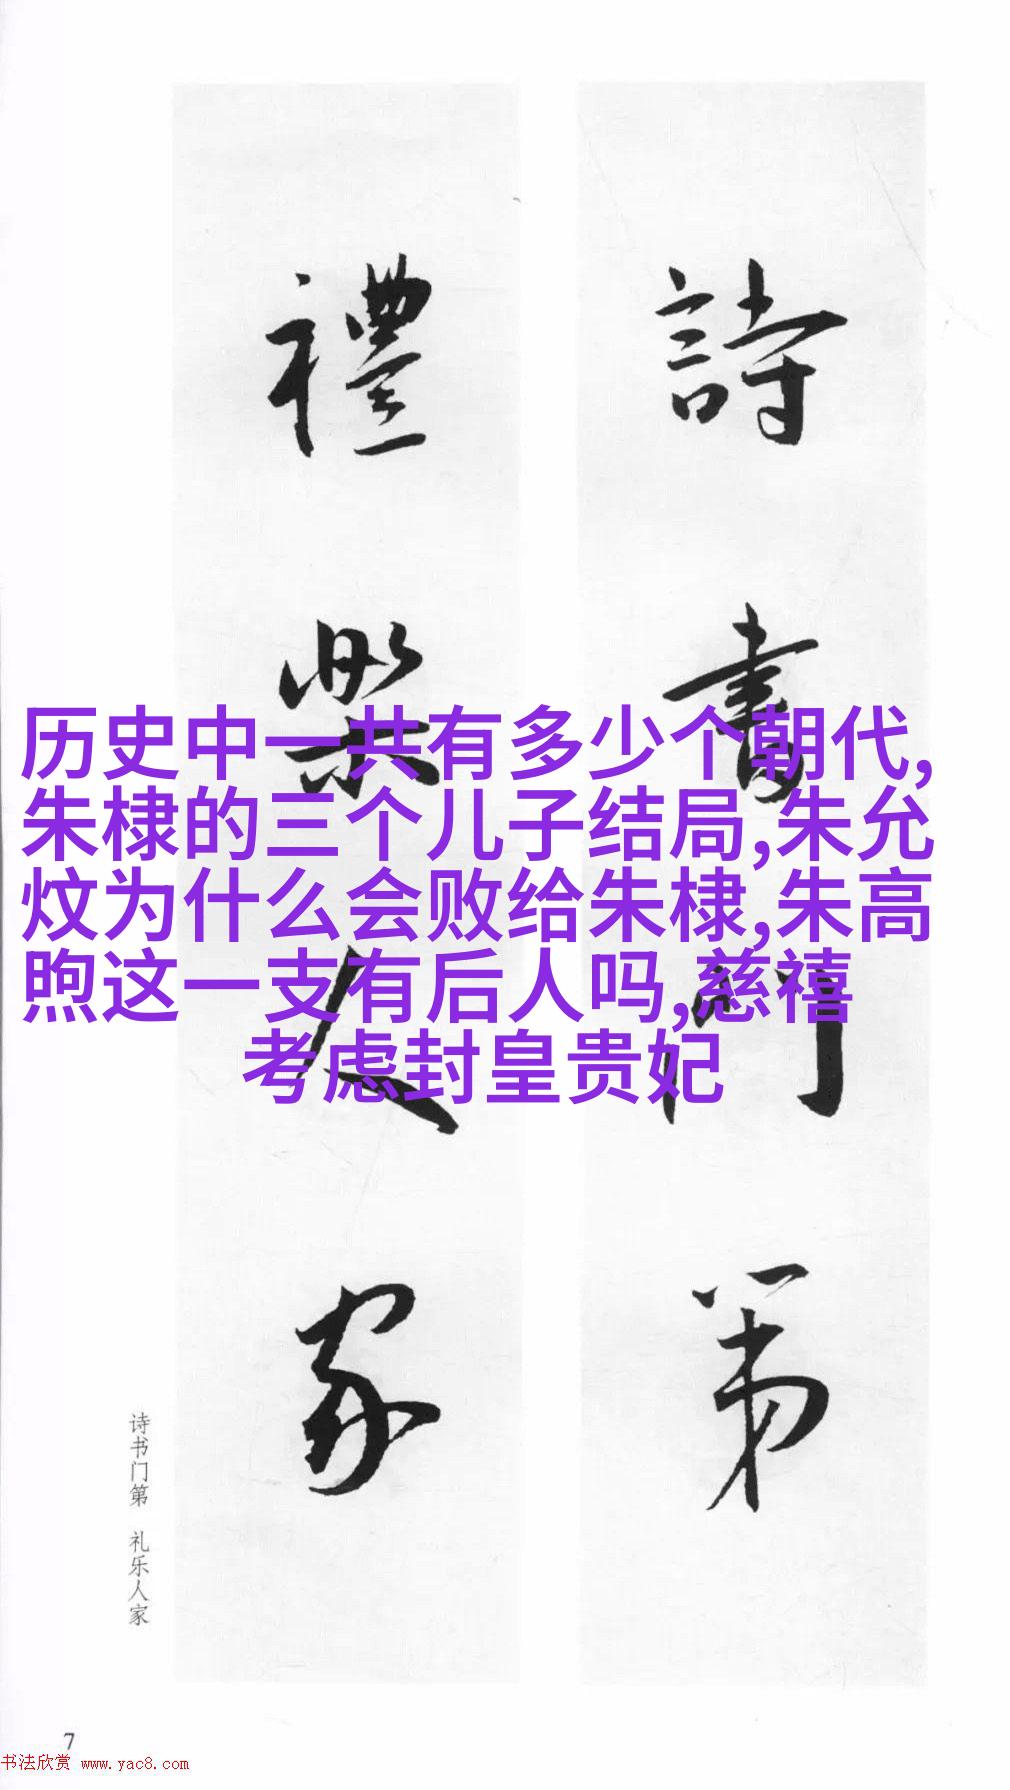 詩書門第
禮樂人家
历史中一共有多少个朝代,
朱棣的三个儿子结局,朱允
炆为什么会败给朱棣,朱高
煦这一支有后人吗,慈禧
考虑封皇贵妃
诗书门第 礼乐人家
7
书法欣赏 www.yac8.com